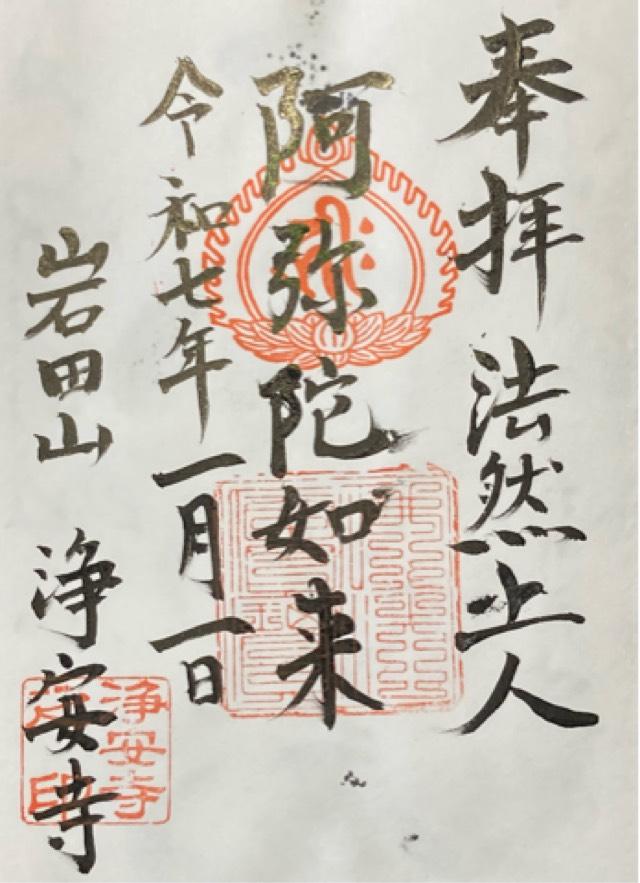 奉拝 法然上人
阿弥陀如来
令和七年一月一日
岩田山 浄安寺
浄安寺
印